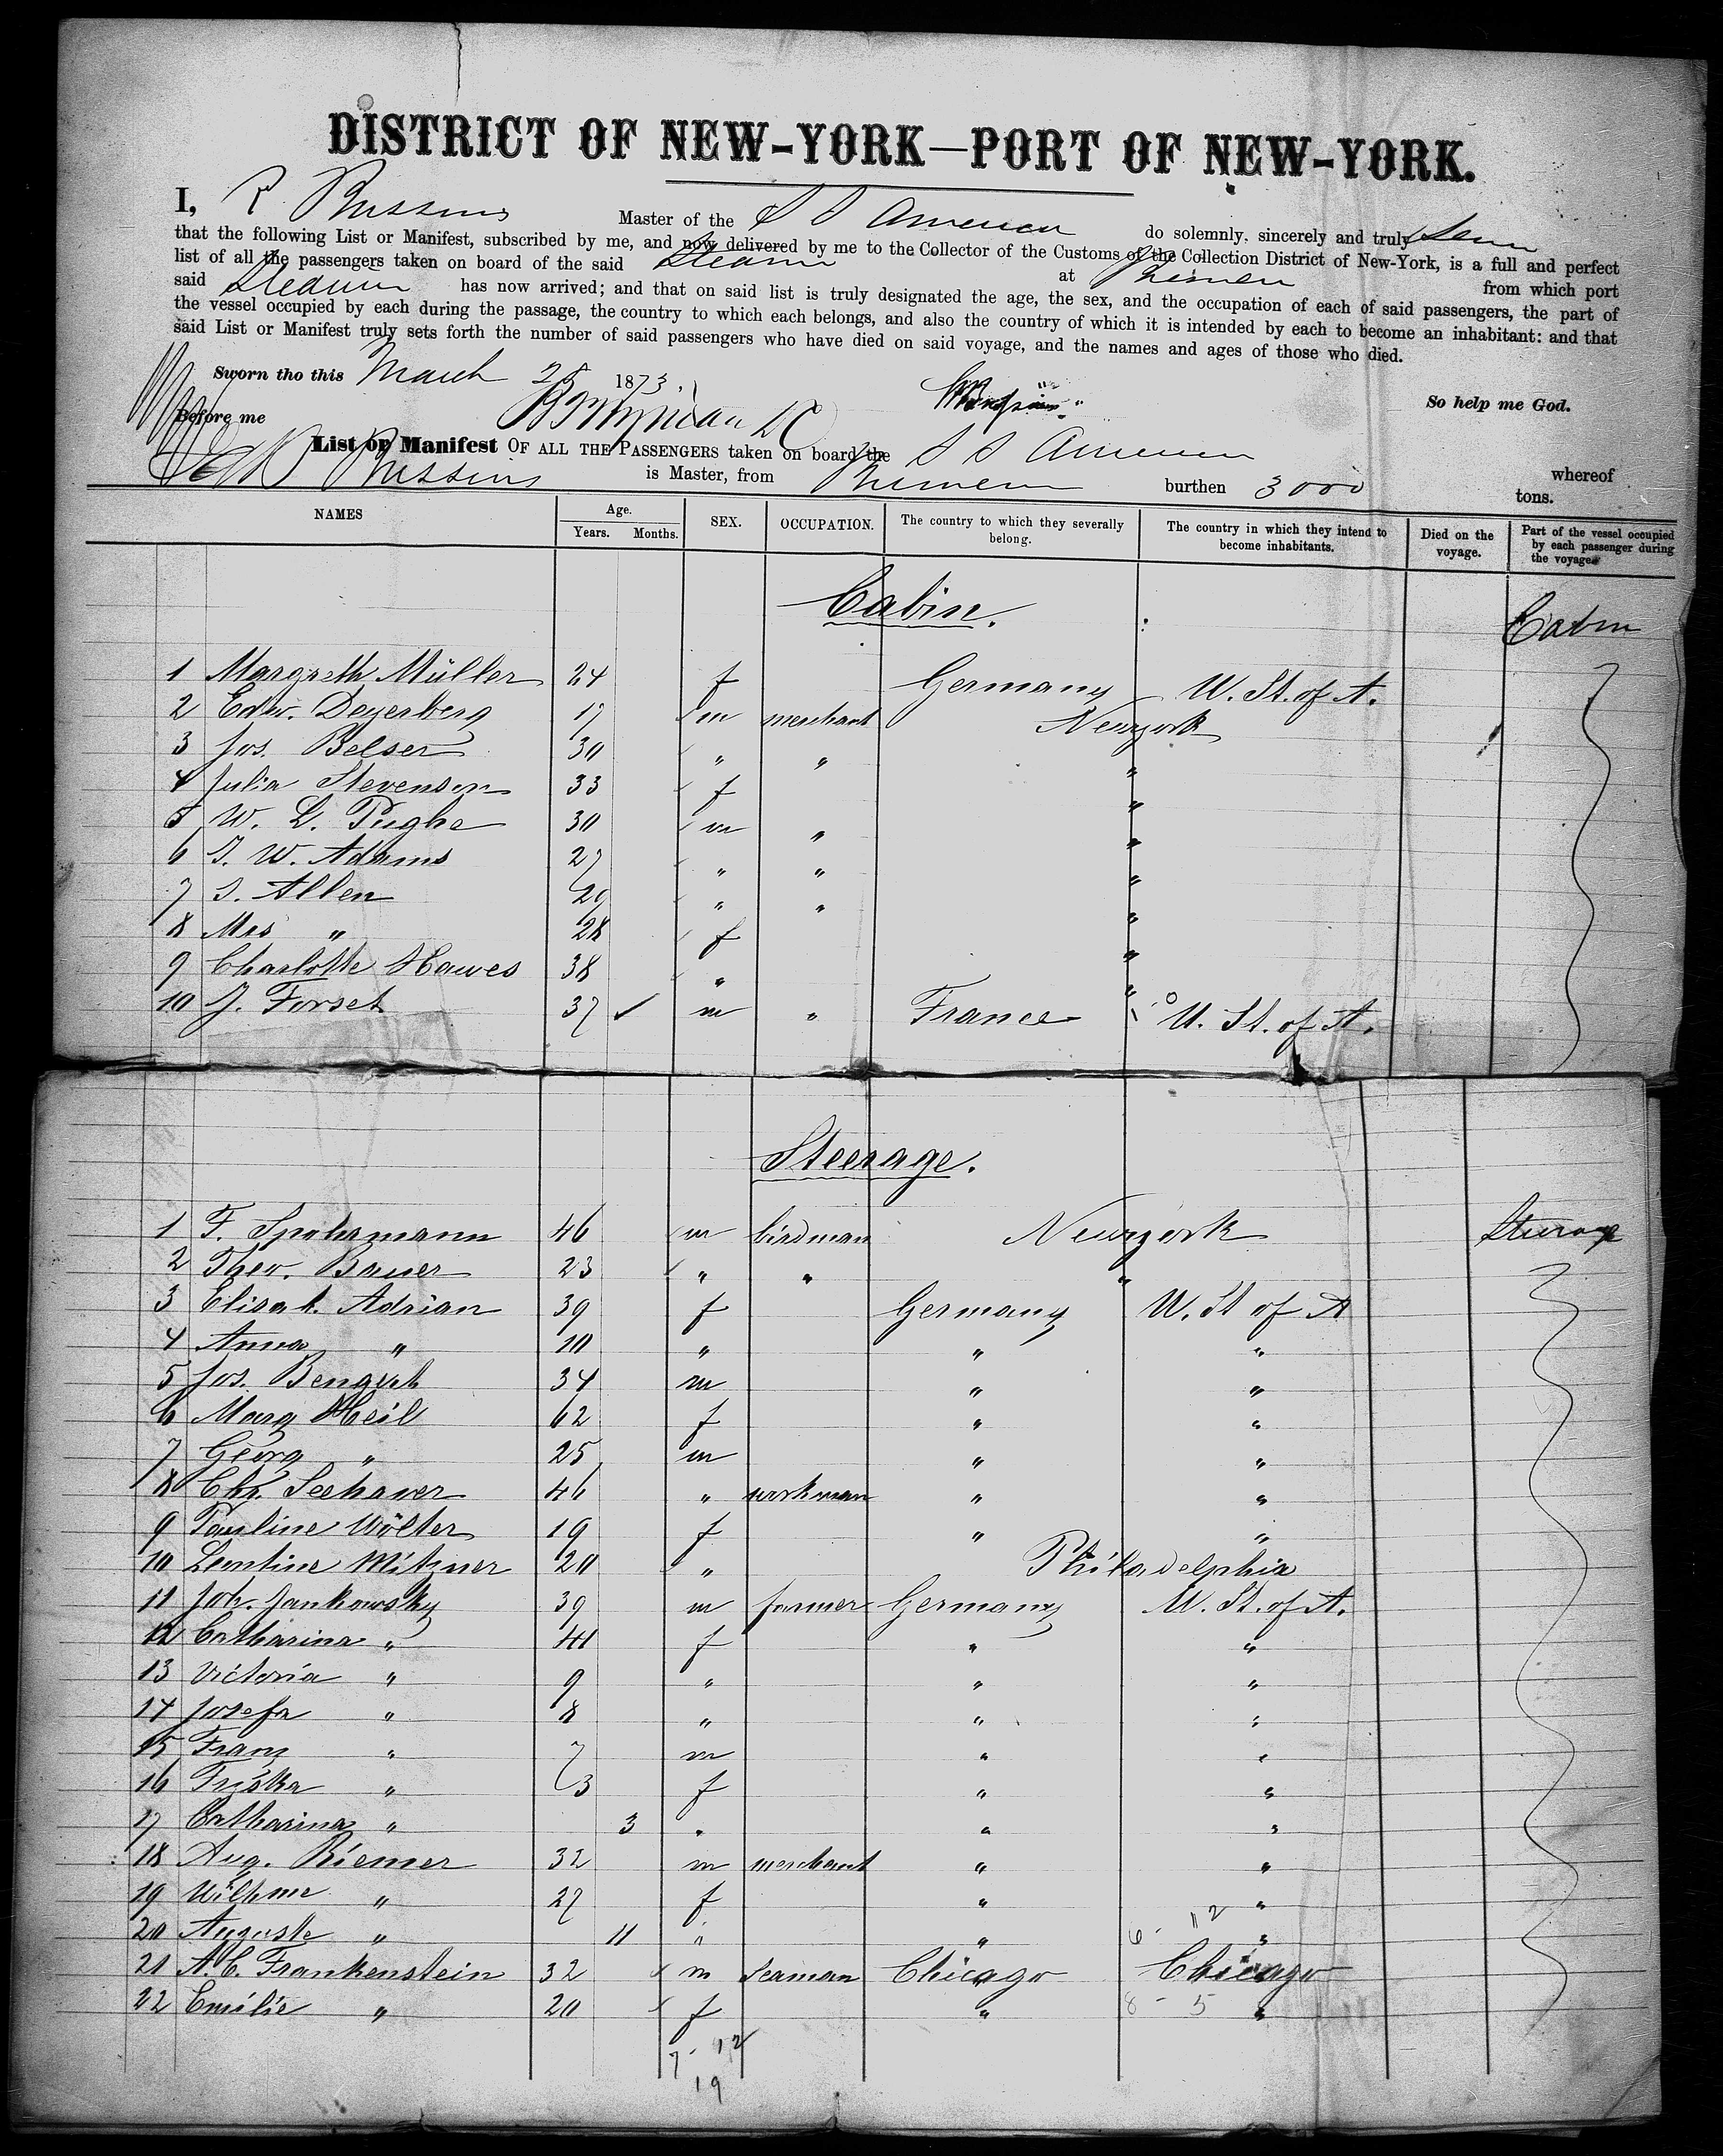 DISTRICT OF NEW-YORK—PORT OF NEW-YORK.
I, R Bussius Master of the S S America do solemnly, sincerely and truly
that the following List or Manifest, subscribed by me, and now delivered by me to the Collector of the Customs of the Collection District of New-York, is a full and perfect
list of all the passengers taken on board of the said Steamer at Bremen from which port
said Steamer has now arrived; and that on said list is truly designated the age, the sex, and the occupation of each of said passengers, the part of
the vessel occupied by each during the passage, the country to which each belongs, and also the country of which it is intended by each to become an inhabitant: and that
said List or Manifest truly sets forth the number of said passengers who have died on said voyage, and the names and ages of those who died.
Sworn tho this March 25 1873. So help me God.
Before me
List or Manifest OF ALL THE PASSENGERS taken on board the S S America whereof
R Bussius is Master, from Bremen burthen 3000 tons.
NAMES Age. Years. Months. SEX. OCCUPATION. The country to which they severally belong. The country in which they intend to become inhabitants. Died on the voyage. Part of the vessel occupied by each passenger during the voyage.
Cabin. Cabin
1 Margreth Müller 24 f Germany U. St. of A.
2 Edw. Deyerberg 17 m merchant Newyork
3 Jos. Belser 30 " " "
4 Julia Stevenson 33 f "
5 W. L. Pughe 30 m " "
6 T. W. Adams 27 " " "
7 S. Allen 29 " " "
8 Mrs " 28 f "
9 Charlotte Hawes 38 " "
10 J. Forset 37 m " France U. St. of A.
Steerage.
1 F. Spohrmann 46 m birdman Newyork Steerage
2 Theo. Bauer 23 " " "
3 Elisab. Adrian 39 f Germany U. St of A
4 Anna " 10 " " "
5 Jos. Bengert 34 m " "
6 Marg Heil 62 f " "
7 Georg " 25 m " "
8 Chr. Seehaver 46 " workman " "
9 Pauline Wölter 19 f " "
10 Leontine Mitzner 20 " Philadelphia
11 Joh. Jankowsky 39 m farmer Germany U. St. of A.
12 Catharina " 40 f " "
13 Victoria " 9 " " "
14 Josefa " 8 " " "
15 Franz " 7 m " "
16 Friska " 3 f " "
17 Catharina " 3 " " "
18 Aug. Riemer 32 m merchant " "
19 Wilhme " 27 f " "
20 Auguste " 11 " " 6 - 12 "
21 A. C. Frankenstein 32 m seaman Chicago Chicago
22 Emilie " 20 f " 8 - 5 "
7 - 12
19